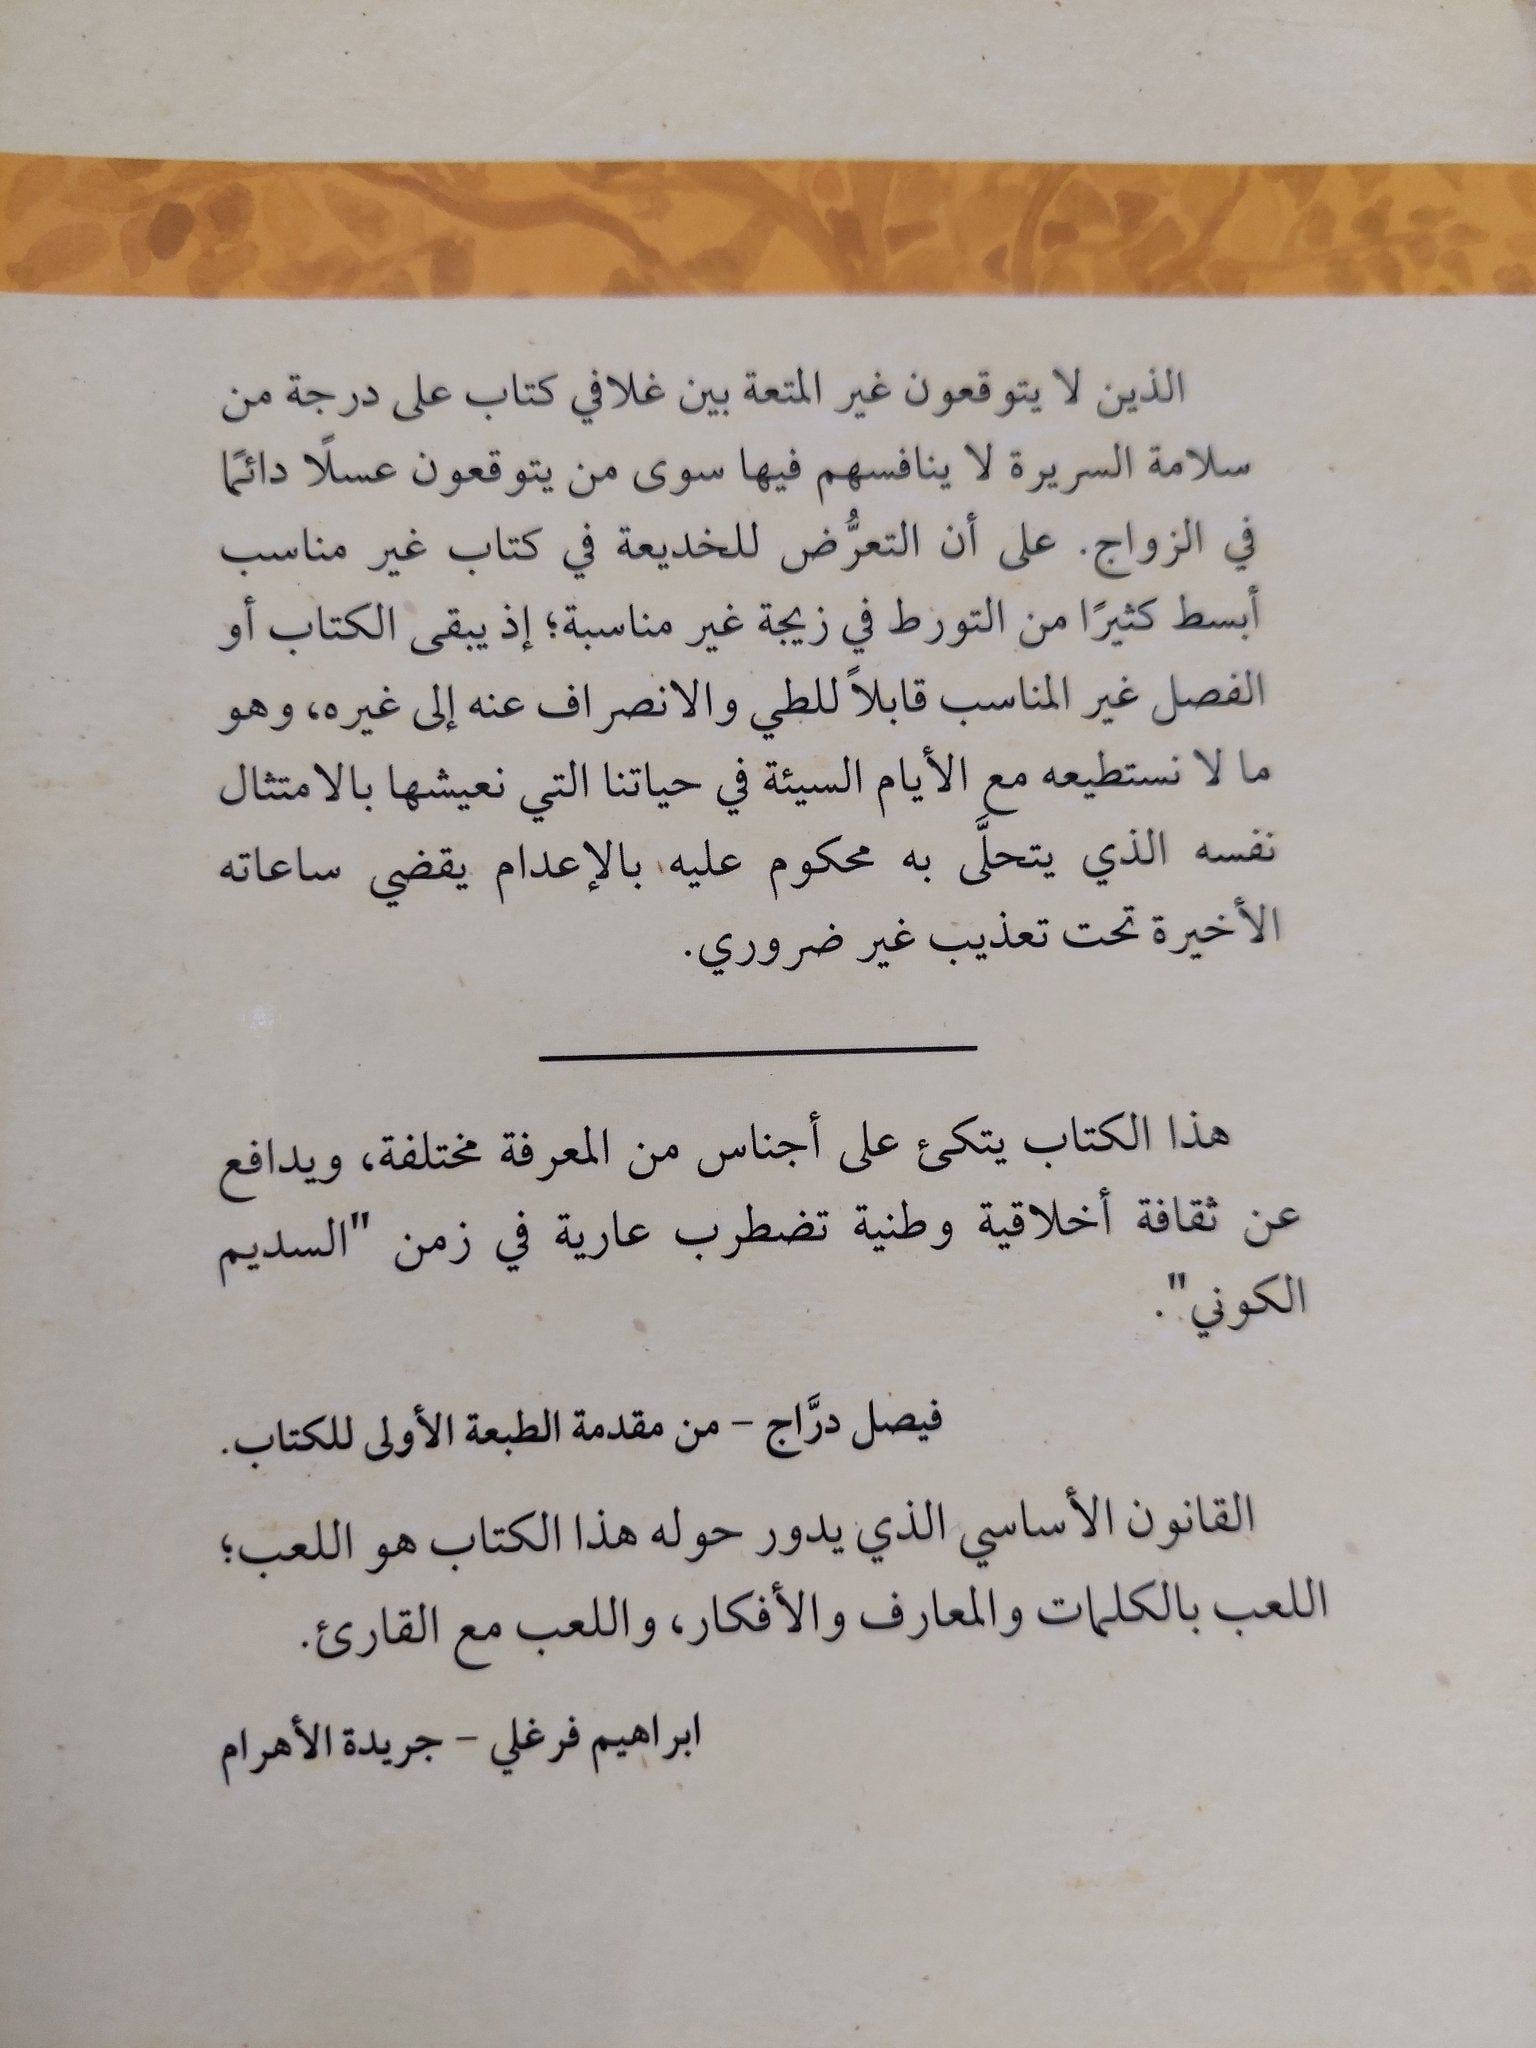 الذين لا يتوقعون غير المتعة بين غلافي كتاب على درجة من
سلامة السريرة لا ينافسهم فيها سوى من يتوقعون عسلًا دائمًا
في الزواج. على أن التعرُّض للخديعة في كتاب غير مناسب
أبسط كثيرًا من التورط في زيجة غير مناسبة؛ إذ يبقى الكتاب أو
الفصل غير المناسب قابلاً للطي والانصراف عنه إلى غيره، وهو
ما لا نستطيعه مع الأيام السيئة في حياتنا التي نعيشها بالامتثال
نفسه الذي يتحلَّى به محكوم عليه بالإعدام يقضي ساعاته
الأخيرة تحت تعذيب غير ضروري.
هذا الكتاب يتكئ على أجناس من المعرفة مختلفة، ويدافع
عن ثقافة أخلاقية وطنية تضطرب عارية في زمن "السديم
الكوني".
فيصل درَّاج – من مقدمة الطبعة الأولى للكتاب.
القانون الأساسي الذي يدور حوله هذا الكتاب هو اللعب؛
اللعب بالكلمات والمعارف والأفكار، واللعب مع القارئ.
ابراهيم فرغلي – جريدة الأهرام